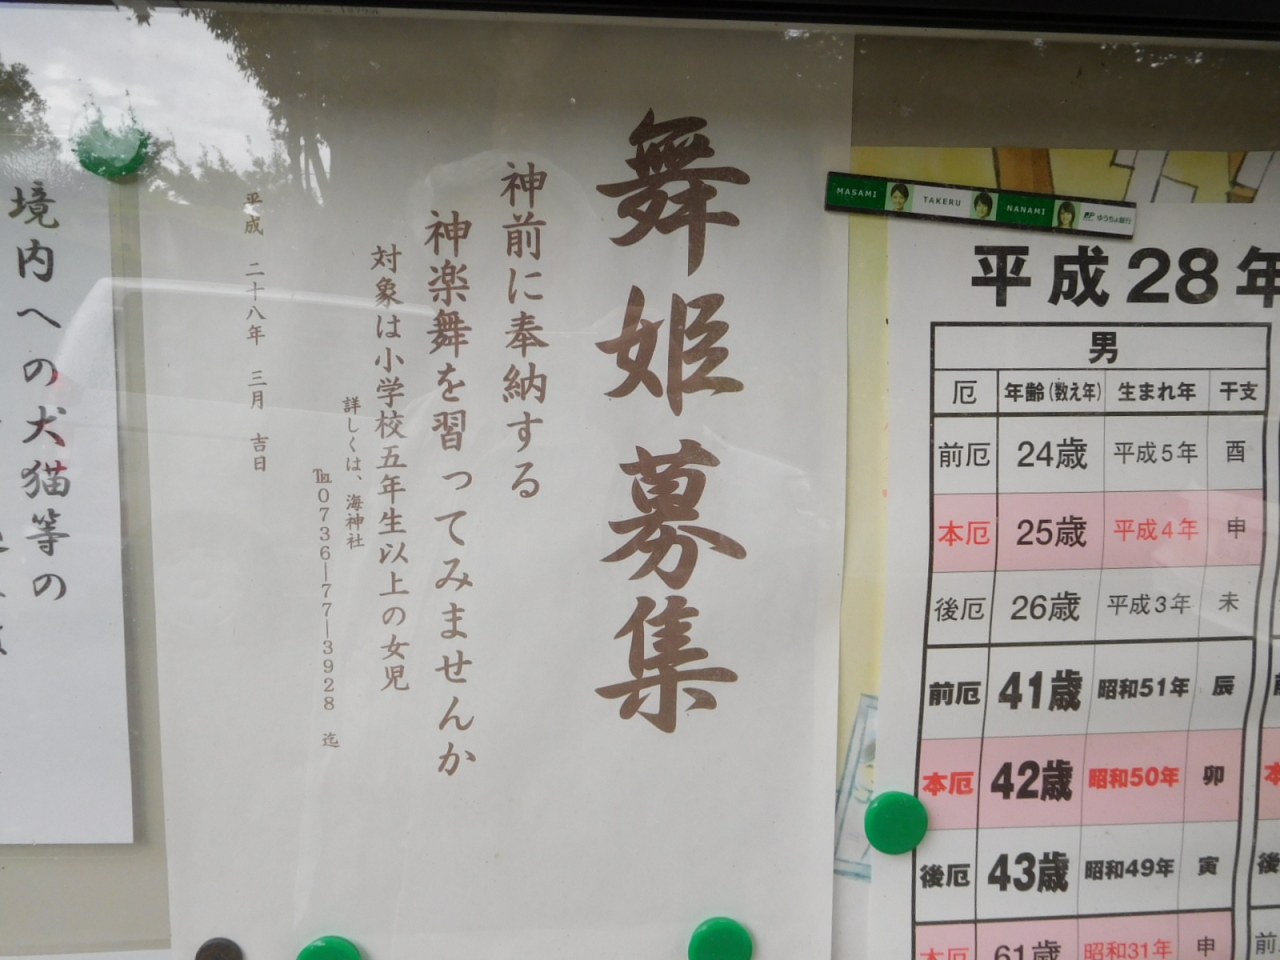 舞姫募集
神前に奉納する
神楽舞を習ってみませんか
対象は小学校五年生以上の女児
詳しくは、海神社
℡0736―77―3928 迄
平成 二十八年 三月 吉日
境内への犬猫等の
MASAMI
TAKERU
NANAMI
ゆうちょ銀行
平成28年
男
厄 年齢(数え年) 生まれ年 干支
前厄 24歳 平成5年 酉
本厄 25歳 平成4年 申
後厄 26歳 平成3年 未
前厄 41歳 昭和51年 辰
本厄 42歳 昭和50年 卯
後厄 43歳 昭和49年 寅
本厄 61歳 昭和31年 申